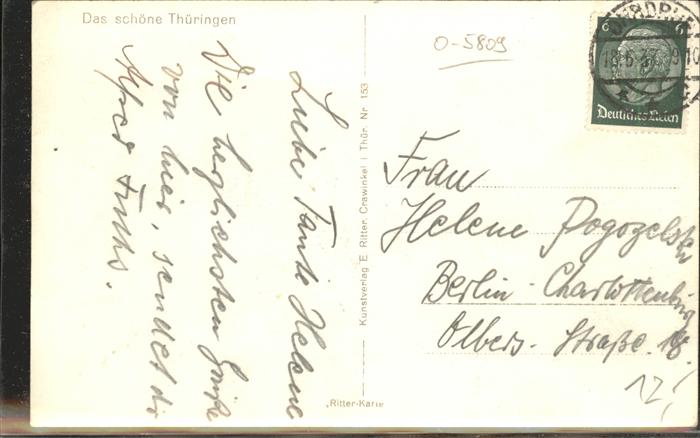 Das schöne Thüringen
O-5809
6 6
OHRDRUF
18.6.37. 9-10
Deutsches Reich
Liebe Tante Helene
Die herzlichsten Grüße
von hier, sendet dir
Fuchs.
Kunstverlag E. Ritter, Crawinkel i Thür. Nr. 153
"Ritter-Karte
Frau
Helene Pogozelski
Berlin-Charlottenburg
Olbers-Straße 18.
12,